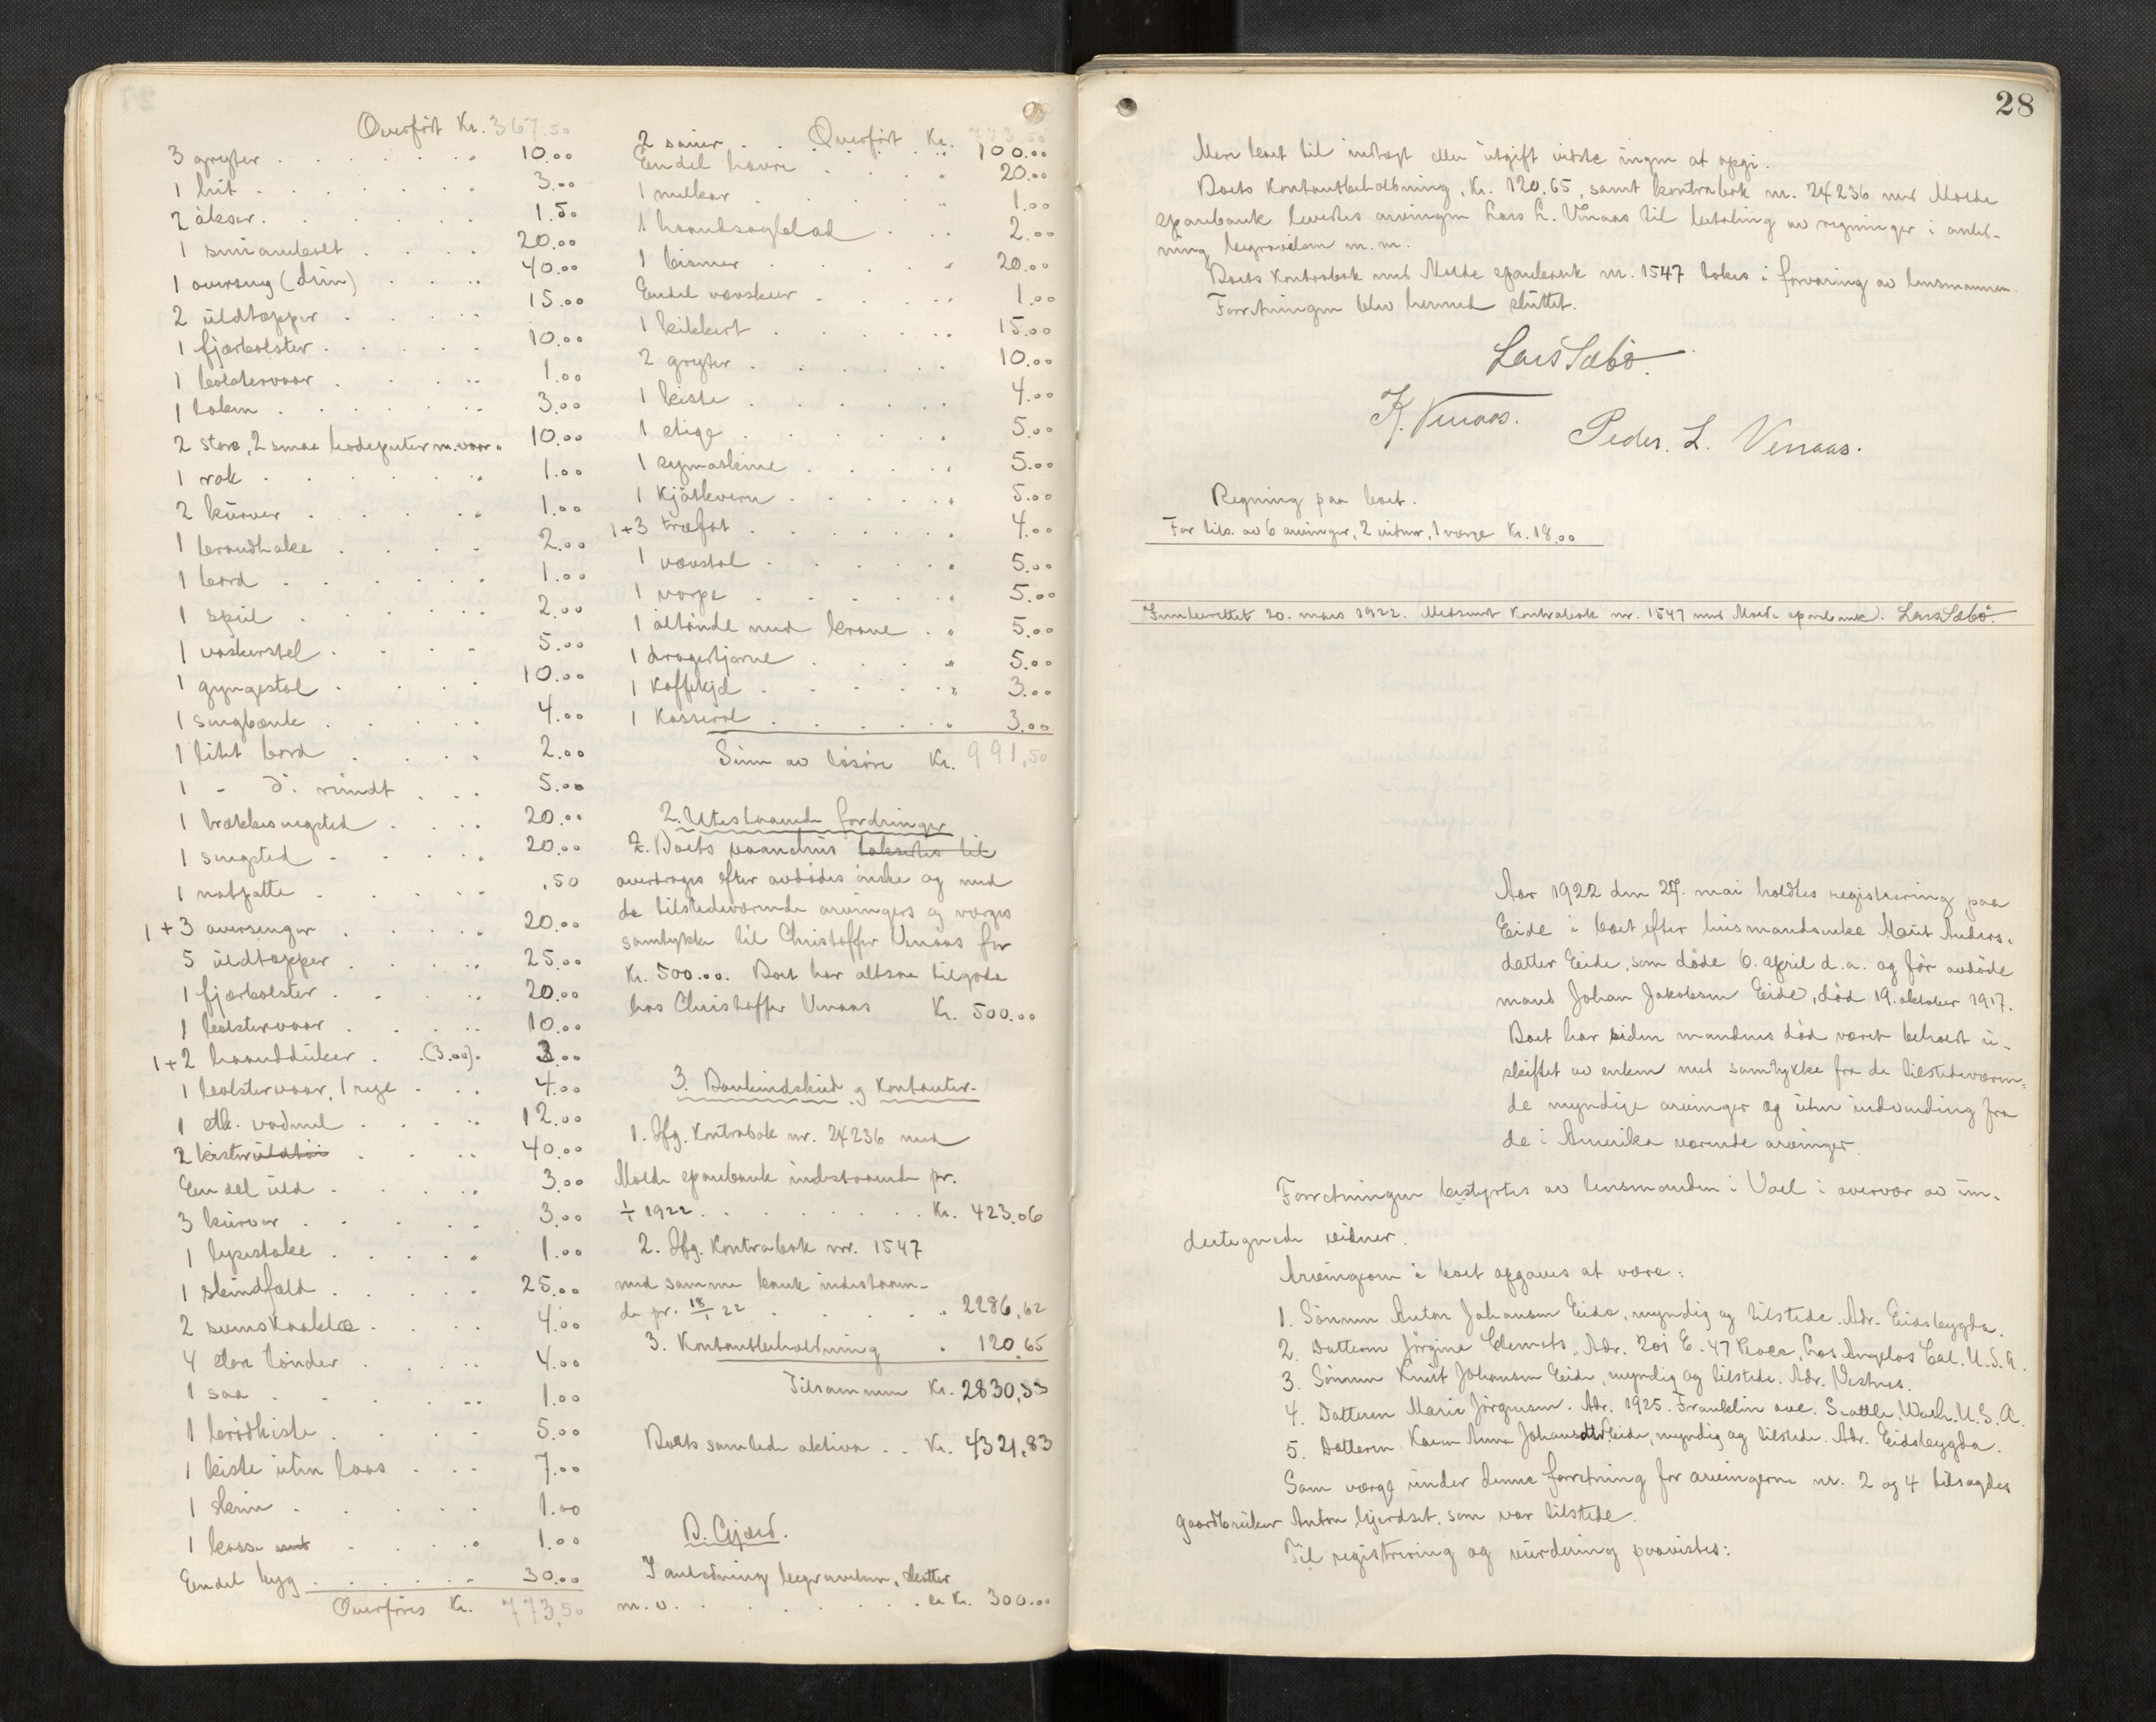 Overført Kr. 367.50
3 gryter . . . . . . . 10.00
1 lut . . . . . . . 3.00
2 økser . . . . . . 1.50
1 smiambolt . . . . 20.00
1 overseng (dun) . . . . 40.00
2 uldtæpper . . . . . 15.00
1 fjærbolster . . . . . 10.00
1 bolstervaar . . . . . 1.00
1 laken . . . . . . . 3.00
2 store, 2 smaa hodeputer m. vaar . 10.00
1 rok . . . . . . . 1.00
2 kurver . . . . . . 1.00
1 brandhake . . . . . 2.00
1 bord . . . . . . . 1.00
1 speil . . . . . . 2.00
1 vaskerstel . . . . . 5.00
1 gyngestol . . . . . 10.00
1 sengbænk . . . . . 4.00
1 litet bord . . . . 2.00
1 - do. rundt . . . 5.00
1 trækkesengsted . . . . 20.00
1 sengsted . . . . . 20.00
1 natpotte . . . . . .50
1+3 oversenger . . . . . 20.00
5 uldtæpper . . . . . 25.00
1 fjærbolster . . . . . 20.00
1 bolstervaar . . . . . 10.00
1+2 haandduker . . (3.00) . 3.00
1 bolstervaar, 1 rye . . . 4.00
1 stk. vadmel . . . . . 12.00
2 kister uldtøi . . . . 40.00
Endel uld . . . . . 3.00
3 kurver . . . . . . 3.00
1 lysestake . . . . . 1.00
1 skindfæld . . . . . 25.00
2 svinskrokke . . . . . 4.00
4 store tønder . . . . . 4.00
1 saa . . . . . . . 1.00
1 brødkiste . . . . . 5.00
1 kiste uten laas . . . 7.00
1 skrin . . . . . . 1.00
1 kasse . . . . . 1.00
Endel byg . . . . . . 30.00
Overføres Kr. 773,50
Overført Kr. 773,50
2 sauer . . . . . . 100.00
Endel havre . . . . . 20.00
1 melkar . . . . . . 1.00
1 haandsagblad . . . 2.00
1 bismer . . . . . . 20.00
Endel vævskeer . . . . . 1.00
1 kikkert . . . . . . 15.00
2 gryter . . . . . . 10.00
1 kiste . . . . . . 4.00
1 stige . . . . . . 5.00
1 symaskine . . . . . 5.00
1 Kjøtkvern . . . . . . 5.00
1+3 træfat . . . . . . 4.00
1 vævstol . . . . . . 5.00
1 varpe . . . . . . 5.00
1 øltønde med krane . . 5.00
1 dragertjørne . . . . . 5.00
1 Kaffekjel . . . . . . 3.00
1 Kasserol . . . . . . 3.00
Sum av løsøre Kr. 991,50
2. Utestaaende fordringer
2. Boets vaanehus taksertes til
overdroges efter avdødes ønske og med
de tilstedeværende arvingers og værges
samtykke til Christoffer Venaas for
Kr. 500.00. Boet har altsaa tilgode
hos Christoffer Venaas Kr. 500.00
3. Bankindskud og Kontanter.
1. Ifg. Kontrabok nr. 24236 med
Molde sparebank indestaaende pr.
1/1 1922 . . . . . . . . Kr. 423.06
2. Ifg. Kontrabok nr. 1547
med samme bank indestaaen-
de pr. 18/1 22 . . . . . . 2286,62
3. Kontantbeholdning . 120.65
Tilsammen Kr. 2830,33
Boets samlede aktiva . . Kr. 4321,83
B. Gjæld.
I anledning begravelsen, skatter
m. v. . . . . . . . . . ca Kr. 300.00
28
Mere boet til indtægt eller utgift vidste ingen at opgi.
Boets Kontantbeholdning, Kr. 120,65, samt kontrabok nr. 24236 med Molde
sparebank levertes arvingen Lars L. Venaas til betaling av regninger i anled-
ning begravelsen m. m.
Boets Kontrabok med Molde sparebank nr. 1547 tokes i forvaring av lensmannen.
Forretningen blev hermed sluttet.
Lars Sæbø.
K. Venaas. Peder. L. Venaas.
Regning paa boet.
For tils. av 6 arvinger, 2 vidner, 1 værge Kr. 18.00
Innberettet 20. mars 1922. Medsendt Kontrabok nr. 1547 med Molde sparebank. Lars Sæbø.
Aar 1922 den 27. mai holdtes registrering paa
Eide i boet efter husmandsenke Marit Anders-
datter Eide, som døde 6. april d. a. og før avdøde
mand Johan Jakobsen Eide, død 19. oktober 1917.
Boet har siden mandens død været behold u-
skiftet av enken med samtykke fra de tilstedeværen-
de myndige arvinger og uten indvending fra
de i Amerika værende arvinger.
Forretningen bestyrtes av lensmanden i Voll i overvær av un-
dertegnede vidner.
Arvingerne i boet opgaves at være:
1. Sønnen Anton Johansen Eide, myndig og tilstede. Adr. Eidsbygda.
2. Datteren Jørgine Clements, Adr. 201 E. 47 Place, Los Angelos Cal. U.S.A.
3. Sønnen Knut Johansen Eide, myndig og tilstede. Adr. Vestnes.
4. Datteren Marie Jørgensen. Adr. 1925. Franklin ave. Seattle, Wash. U.S.A.
5. Datteren Karen Anna Johansdtr Eide, myndig og tilstede. Adr. Eidsbygda.
Som værge under denne forretning for arvingerne nr. 2 og 4 tilsagdes
gaardbruker Anton Gjerdset, som var tilstede.
Til registrering og vurdering paavistes: